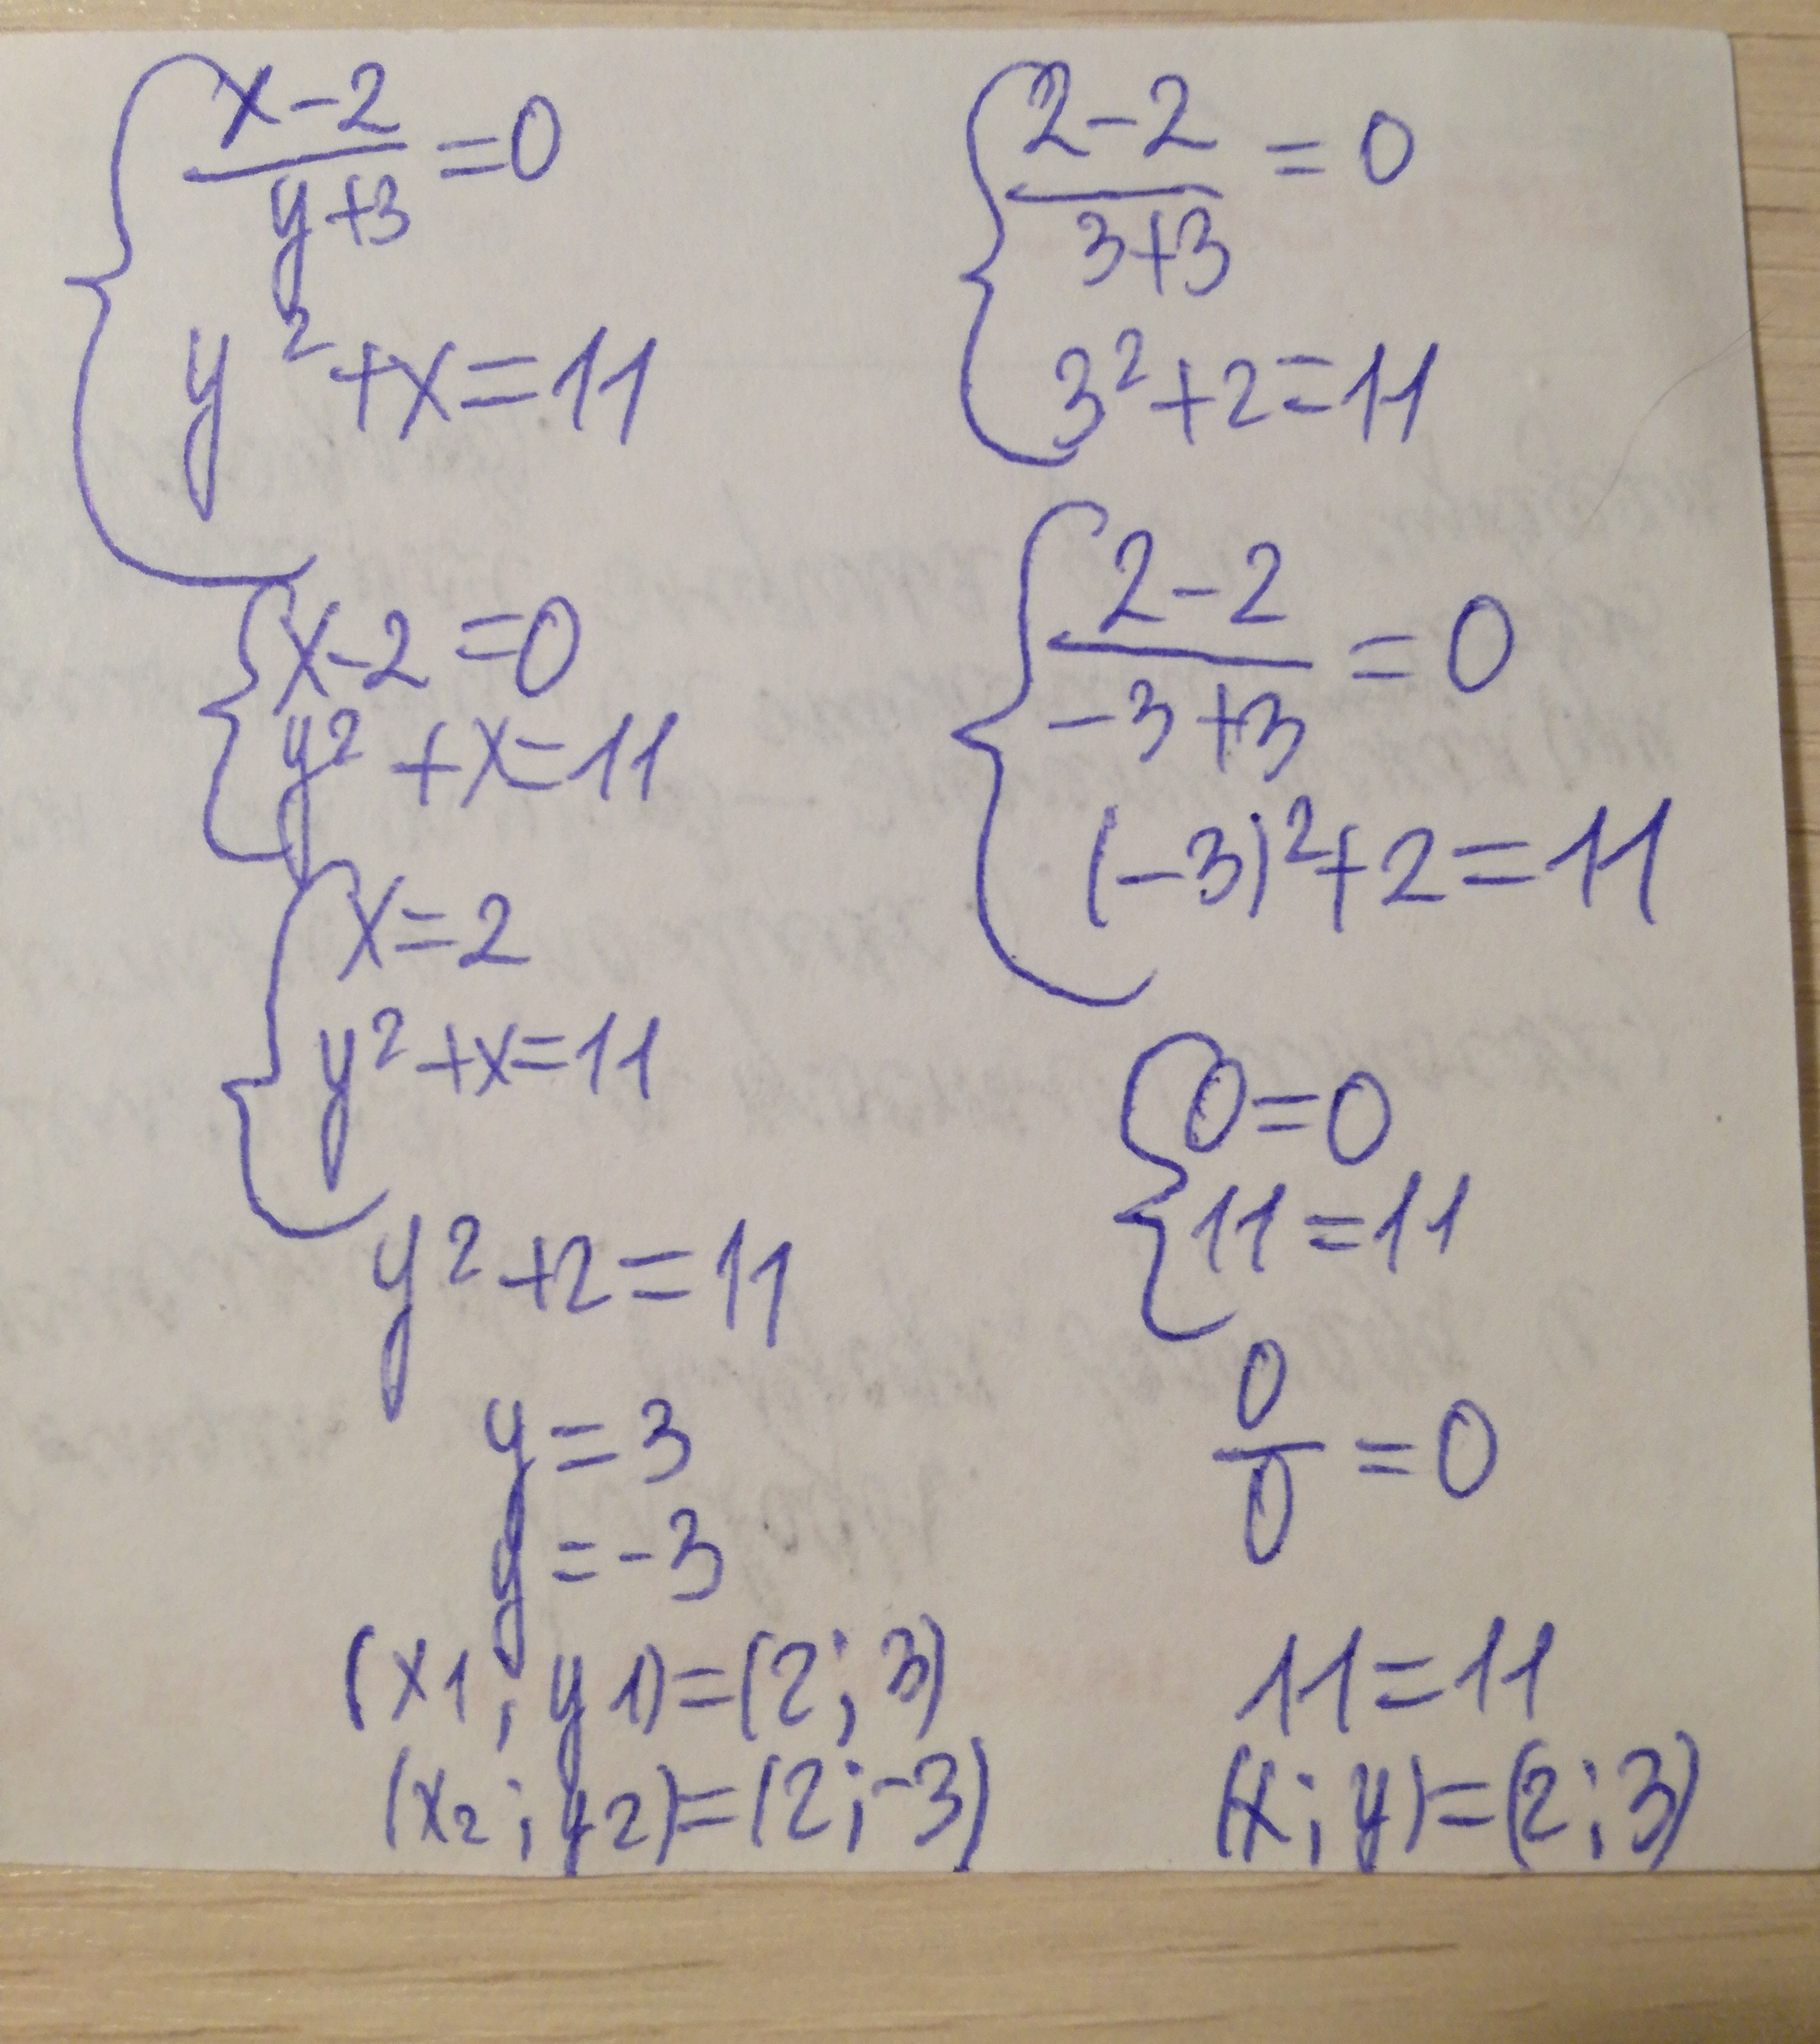 x-2
—— =0
y+3
y²+x=11
{x-2=0
y²+x=11
{x=2
y²+x=11
y²+2=11
y=3
y=-3
(x1;y1)=(2;3)
(x2;y2)=(2;-3)
2-2
—— =0
3+3
3²+2=11
2-2
—— =0
-3+3
(-3)²+2=11
{0=0
11=11
0
— =0
0
11=11
(x;y)=(2;3)